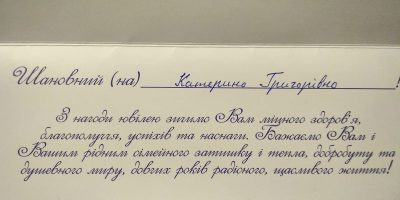 Шановний (на) Катерино Григорівно!
З нагоди ювілею зичимо Вам міцного здоров'я,
благополуччя, успіхів та наснаги. Бажаємо Вам і
Вашим рідним сімейного затишку і тепла, добробуту та
душевного миру, довгих років радісного, щасливого життя!